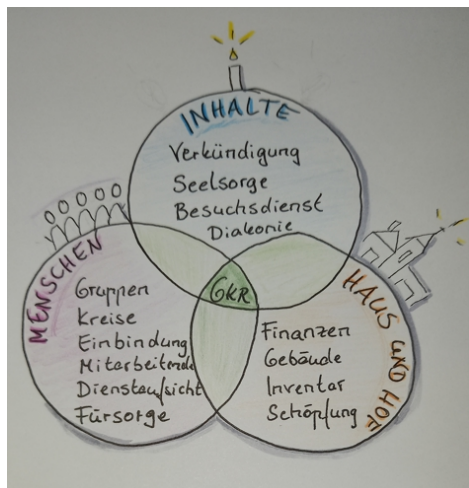 INHALTE
Verkündigung
Seelsorge
Besuchsdienst
Diakonie
MENSCHEN
Gruppen
Kreise
Einbindung
Mitarbeitende
Dienstaufsicht
Fürsorge
GKR
HAUS UND HOF
Finanzen
Gebäude
Inventar
Schöpfung